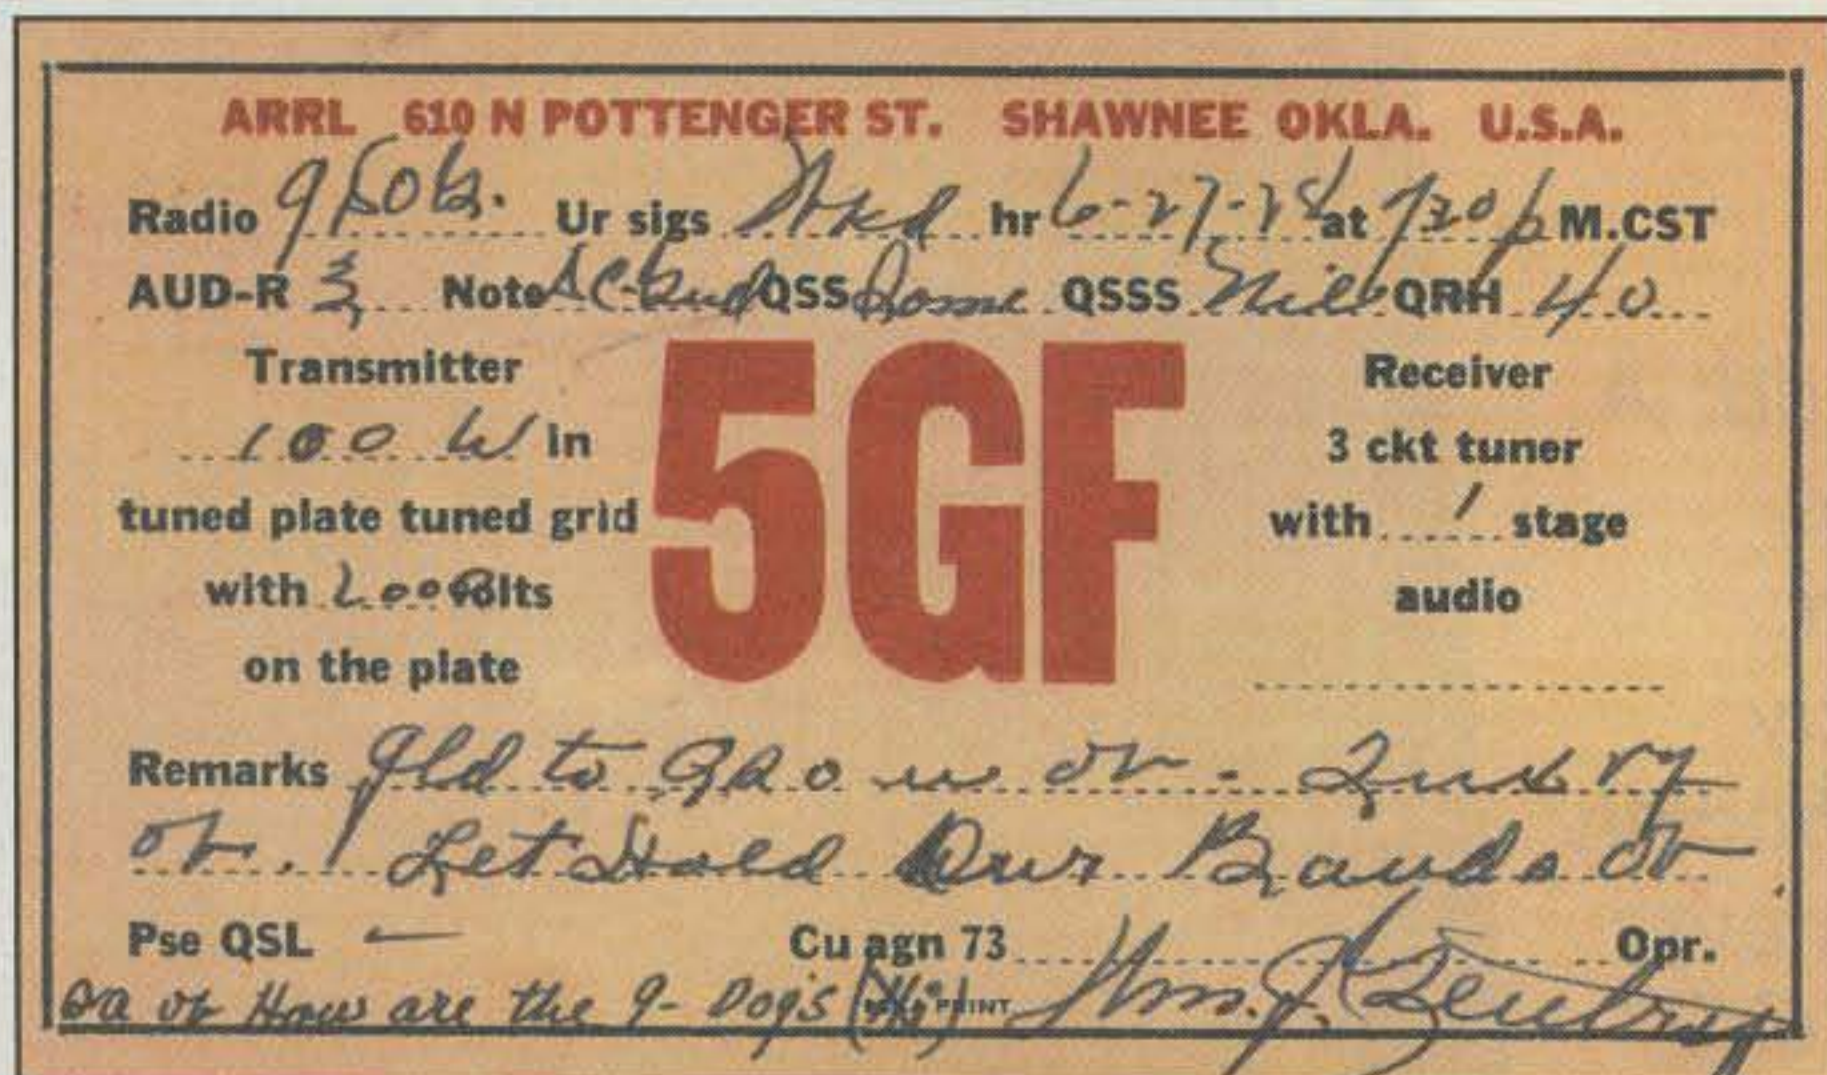 ARRL 610 N POTTENGER ST. SHAWNEE OKLA. U.S.A.
Radio Ur sigs Wkd hr 6-27-28 at 730 p M.CST
AUD-R 3 Note QSS Some QSSS Nil QRH 40
Transmitter
100 W in
tuned plate tuned grid
with volts
on the plate
5GF
Receiver
3 ckt tuner
with 1 stage
audio
Remarks Gld to QSO u ob -
ob. Let Hold Our Bands ob
Pse QSL Cu agn 73 Opr.
sa ob How are the 9- Dogs (Hi) PRINT Wm. J.